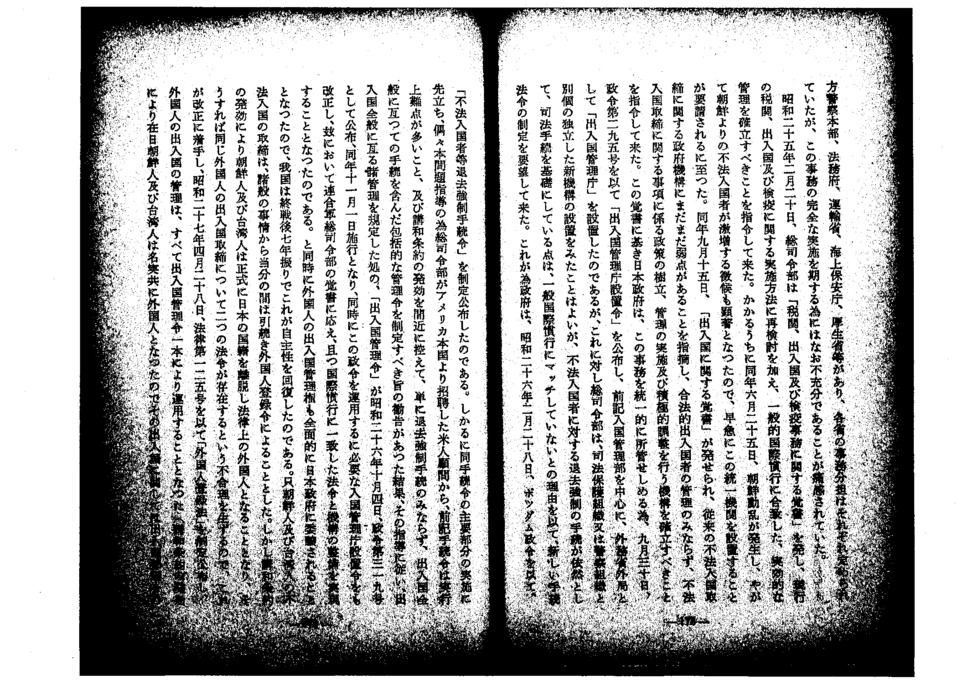 方警察本部、法務府、運輸省、海上保安庁、厚生省等があり、各省の事務分担はそれぞれ
ていたが、この事務の完全な実施を期する為にはなお不充分であることが痛感されていた。
昭和二十五年二月二十日、総司令部は「税関、出入国及び検疫事務に関する覚書」を発し、現行
の税関、出入国及び検疫に関する実施方法に再検討を加え、一般的国際慣行に合致した、実効的な
管理を確立すべきことを指令して来た。かかるうちに同年六月二十五日、朝鮮動乱が発生し、やが
て朝鮮よりの不法入国者が激増する徴候も顕著となつたので、早急にこの統一機関を設置すること
が要請されるに至つた。同年九月十五日、「出入国に関する覚書」が発せられ、従来の不法入国取
締に関する政府機構にまだまだ弱点があることを指摘し、合法的出入国者の管理のみならず、不法
入国取締に関する事項に係る政策の樹立、管理の実施及び積極的調整を行う機構を確立すべきこと
を指令して来た。この覚書に基き日本政府は、この事務を統一的に所管せしめる為、九月三十日、
政令第二九五号を以て「出入国管理庁設置令」を公布し、前記入国管理部を中心に、外務省外局と
して「出入国管理庁」を設置したのであるが、これに対し総司令部は、司法保護組織又は警察組織と
別個の独立した新機構の設置をみたことはよいが、不法入国者に対する退去強制の手続が依然とし
て、司法手続を基礎にしている点は、一般国際慣行にマッチしていないとの理由を以て、新しい手続
法令の制定を要望して来た。これが為政府は、昭和二十六年二月二十八日、ポツダム政令を以て、
「不法入国者等退去強制手続令」を制定公布したのである。しかるに同手続令の主要部分の実施に
先立ち、偶々本問題指導の為総司令部がアメリカ本国より招聘した米人顧問から、前記手続令は実行
上難点が多いこと、及び講和条約の発効を間近に控えて、単に退去強制手続のみならず、出入国全
般に亙つての手続を含んだ包括的な管理令を制定すべき旨の勧告があつた結果、その指導に従い出
入国全般に亙る諸管理を規定した処の、「出入国管理令」が昭和二十六年十月四日、政令第三一九号
として公布、同年十一月一日施行となり、同時にこの政令を運用するに必要な入国管理庁設置令をも
改正し、玆において連合軍総司令部の覚書に応え、且つ国際慣行に一致した法令と機構の整備を実現
することとなつたのである。と同時に外国人の出入国管理権も全面的に日本政府に委譲されること
となつたので、我国は終戦後七年振りでこれが自主性を回復したのである。只朝鮮人及び台湾人の不
法入国の取締は、諸般の事情から当分の間は引続き外国人登録令によることとした。しかし講和条約
の発効により朝鮮人及び台湾人は正式に日本の国籍を離脱し法律上の外国人となることとなり、
うすれば同じ外国人の出入国取締について二つの法令が存在するという不合理を生ずるので、
が改正に着手し、昭和二十七年四月二十八日、法律第一二五号を以て「外国人登録法」を制定公布し、
外国人の出入国の管理は、すべて出入国管理令一本により運用することとなつた。
により在日朝鮮人及び台湾人は名実共に外国人となつたのでその出入